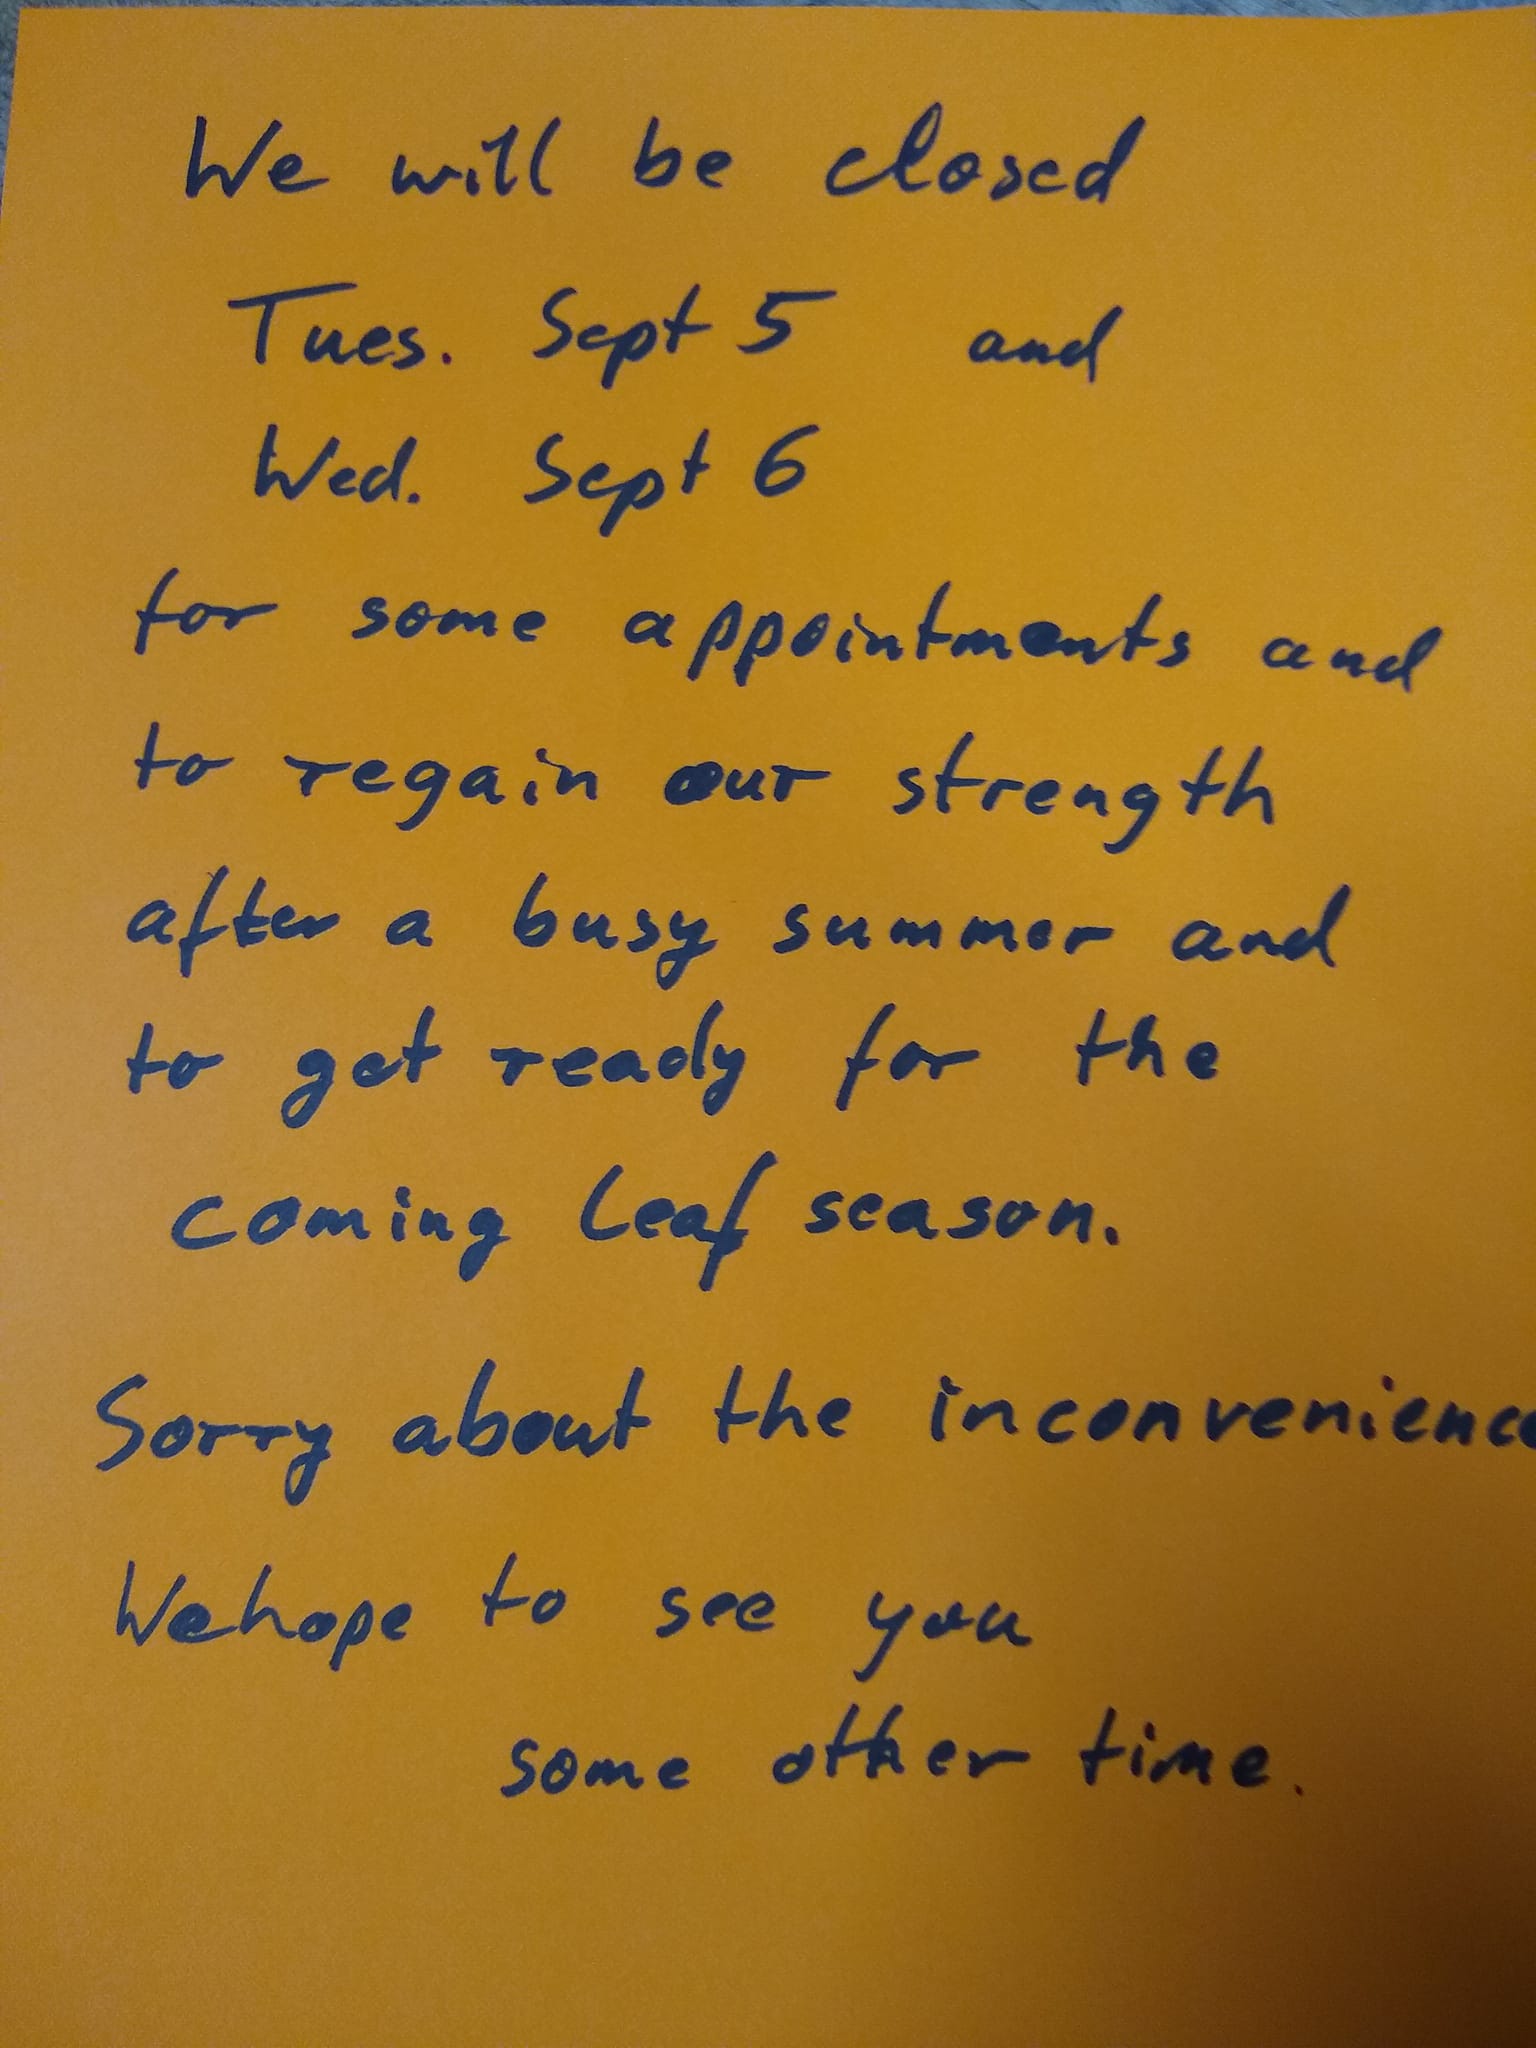 We will be closed
Tues. Sept 5 and
Wed. Sept 6
for some appointments and
to regain our strength
after a busy summer and
to get ready for the
coming leaf season.
Sorry about the inconvenience
We hope to see you
some other time.